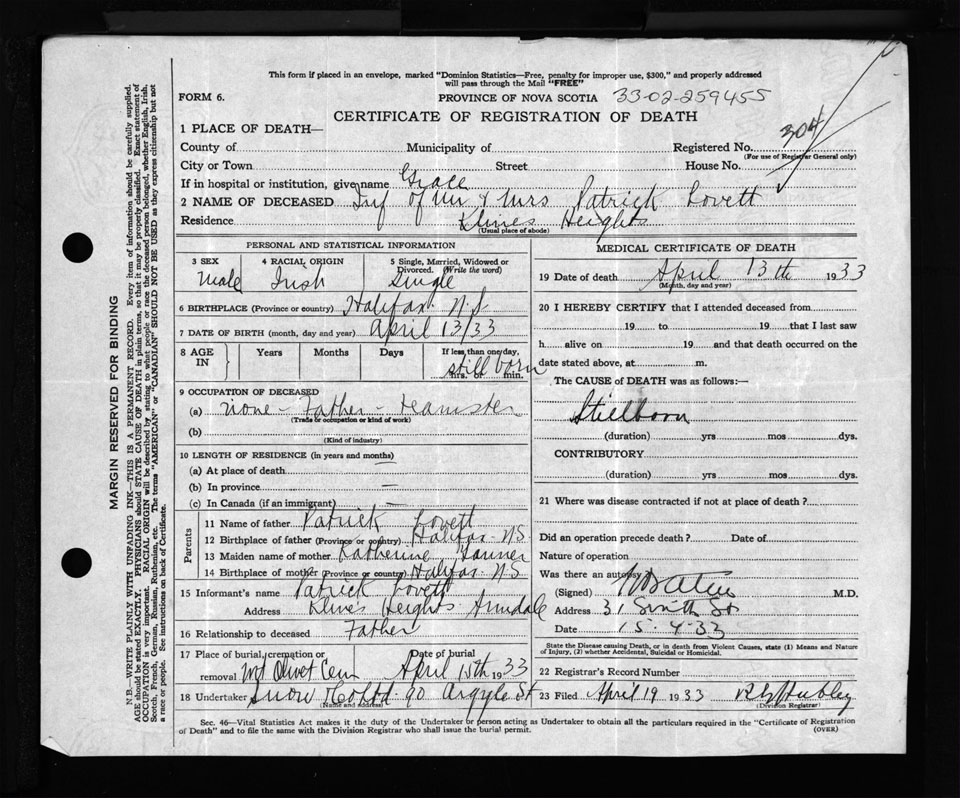 This form if placed in an envelope, marked "Dominion Statistics—Free, penalty for improper use, $300," and properly addressed
will pass through the Mail "FREE"
FORM 6.
PROVINCE OF NOVA SCOTIA 33-02-259455
CERTIFICATE OF REGISTRATION OF DEATH
1 PLACE OF DEATH—
304
County of Municipality of Registered No.
(For use of Registrar General only)
City or Town Street House No.
If in hospital or institution, give name Grace
2 NAME OF DECEASED Inf of Mr & Mrs Patrick Lovett
Residence Klines Heights
(Usual place of abode)
PERSONAL AND STATISTICAL INFORMATION
3 SEX 4 RACIAL ORIGIN 5 Single, Married, Widowed or
Divorced. (Write the word)
Male Irish Single
6 BIRTHPLACE (Province or country) Halifax N.S.
7 DATE OF BIRTH (month, day and year) April 13/33
8 AGE IN Years Months Days If less than one day,
hrs. or min.
still born
9 OCCUPATION OF DECEASED
(a) none - Father - teamster
(Trade or occupation or kind of work)
(b)
(Kind of industry)
10 LENGTH OF RESIDENCE (in years and months)
(a) At place of death
(b) In province —
(c) In Canada (if an immigrant) —
Parents
11 Name of father Patrick Lovett
12 Birthplace of father (Province or country) Halifax N.S.
13 Maiden name of mother Katherine
14 Birthplace of mother (Province or country) Halifax N.S
15 Informant's name Patrick Lovett
Address Kline's Heights Armdale
16 Relationship to deceased Father
17 Place of burial, cremation or removal Mt Olivet Cem Date of burial April 15th 1933
18 Undertaker Snow & Co Ltd. 90 Argyle St
(Name and address)
MEDICAL CERTIFICATE OF DEATH
19 Date of death April 13th 1933
(Month, day and year)
20 I HEREBY CERTIFY that I attended deceased from
19 to 19 that I last saw
h alive on 19 and that death occurred on the
date stated above, at m.
The CAUSE of DEATH was as follows:—
Stillborn
(duration) yrs mos dys.
CONTRIBUTORY
(duration) yrs mos dys.
21 Where was disease contracted if not at place of death?
Did an operation precede death? Date of
Nature of operation
Was there an autopsy
(Signed) M.D.
Address 31 Smith St
Date 15-4-33
State the Disease causing Death, or in death from Violent Causes, state (1) Means and Nature
of Injury, (2) whether Accidental, Suicidal or Homicidal.
22 Registrar's Record Number
23 Filed April 19 1933
(Division Registrar)
Sec. 46—Vital Statistics Act makes it the duty of the Undertaker or person acting as Undertaker to obtain all the particulars required in the "Certificate of Registration
of Death" and to file the same with the Division Registrar who shall issue the burial permit.
(OVER)
MARGIN RESERVED FOR BINDING
N.B.—WRITE PLAINLY WITH UNFADING INK—THIS IS A PERMANENT RECORD. Every item of information should be carefully supplied.
AGE should be stated EXACTLY. PHYSICIANS should STATE CAUSE OF DEATH in plain terms, so that it may be properly classified. Exact statement of
OCCUPATION is very important. RACIAL ORIGIN will be described by stating to what people or race the deceased person belonged, whether English, Irish,
Scotch, French, German, Russian, Ruthenian, etc. The terms "AMERICAN" or "CANADIAN" SHOULD NOT BE USED as they express citizenship but not
a race or people. See instructions on back of Certificate.